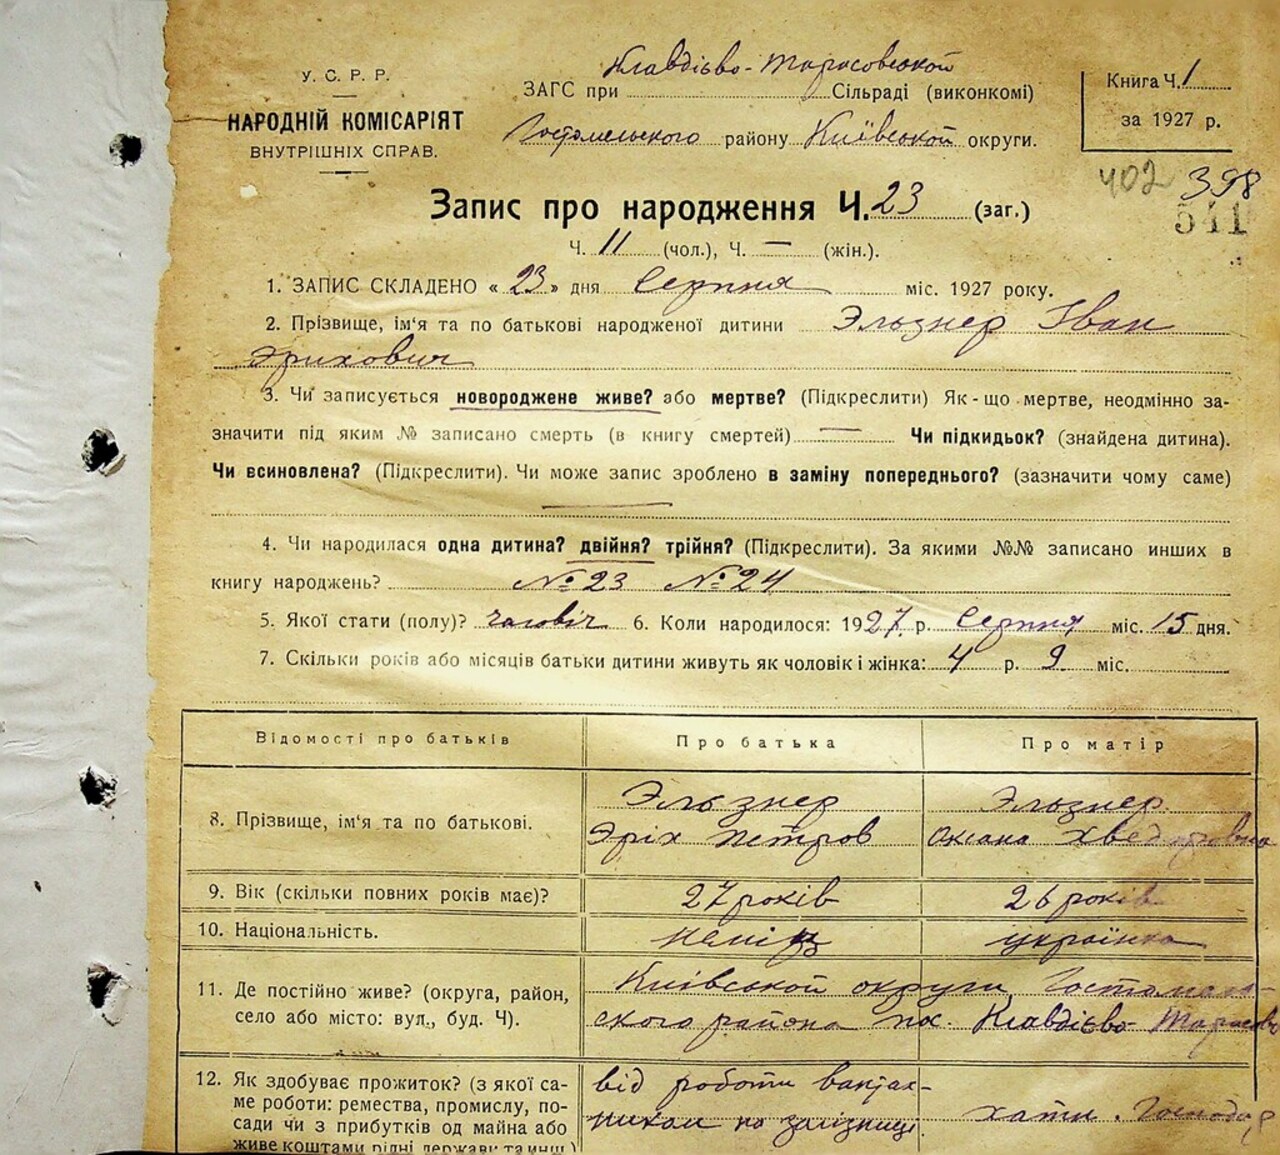 Клавдієво-Тарасовській
У. С. Р. Р.
НАРОДНІЙ КОМІСАРІЯТ
ВНУТРІШНІХ СПРАВ.
ЗАГС при Сільраді (виконкомі)
Гостомельського району Київської округи.
Книга Ч. 1
за 1927 р.
402 398
541
Запис про народження Ч. 23 (заг.)
Ч. 11 (чол.), Ч. — (жін.).
1. ЗАПИС СКЛАДЕНО « 23 » дня Серпня міс. 1927 року.
2. Прізвище, ім'я та по батькові народженої дитини Эльзнер Іван
Эрихович
3. Чи записується новороджене живе? або мертве? (Підкреслити) Як-що мертве, неодмінно за-
значити під яким № записано смерть (в книгу смертей) — Чи підкидьок? (знайдена дитина).
Чи всиновлена? (Підкреслити). Чи може запис зроблено в заміну попереднього? (зазначити чому саме)
4. Чи народилася одна дитина? двійня? трійня? (Підкреслити). За якими №№ записано инших в
книгу народжень? №23 №24
5. Якої стати (полу)? чоловіч 6. Коли народилося: 1927 р. Серпня міс. 15 дня.
7. Скільки років або місяців батьки дитини живуть як чоловік і жінка: 4 р. 9 міс.
Відомості про батьків Про батька Про матір
8. Прізвище, ім'я та по батькові. Эльзнер Эріх Петров Эльзнер Оксана Хведоровна
9. Вік (скільки повних років має)? 27 років 26 років
10. Національність. німіц українка
11. Де постійно живе? (округа, район, Київської округи, Гостомель-
село або місто: вул., буд. Ч). ского района пос. Клавдієво-Тарасово
12. Як здобуває прожиток? (з якої са-
ме роботи: ремества, промислу, по-
сади чи з прибутків од майна або
живе коштами рідні держави та инш.)
від роботи вантаж-
ником на залізниці
хатн. Господар